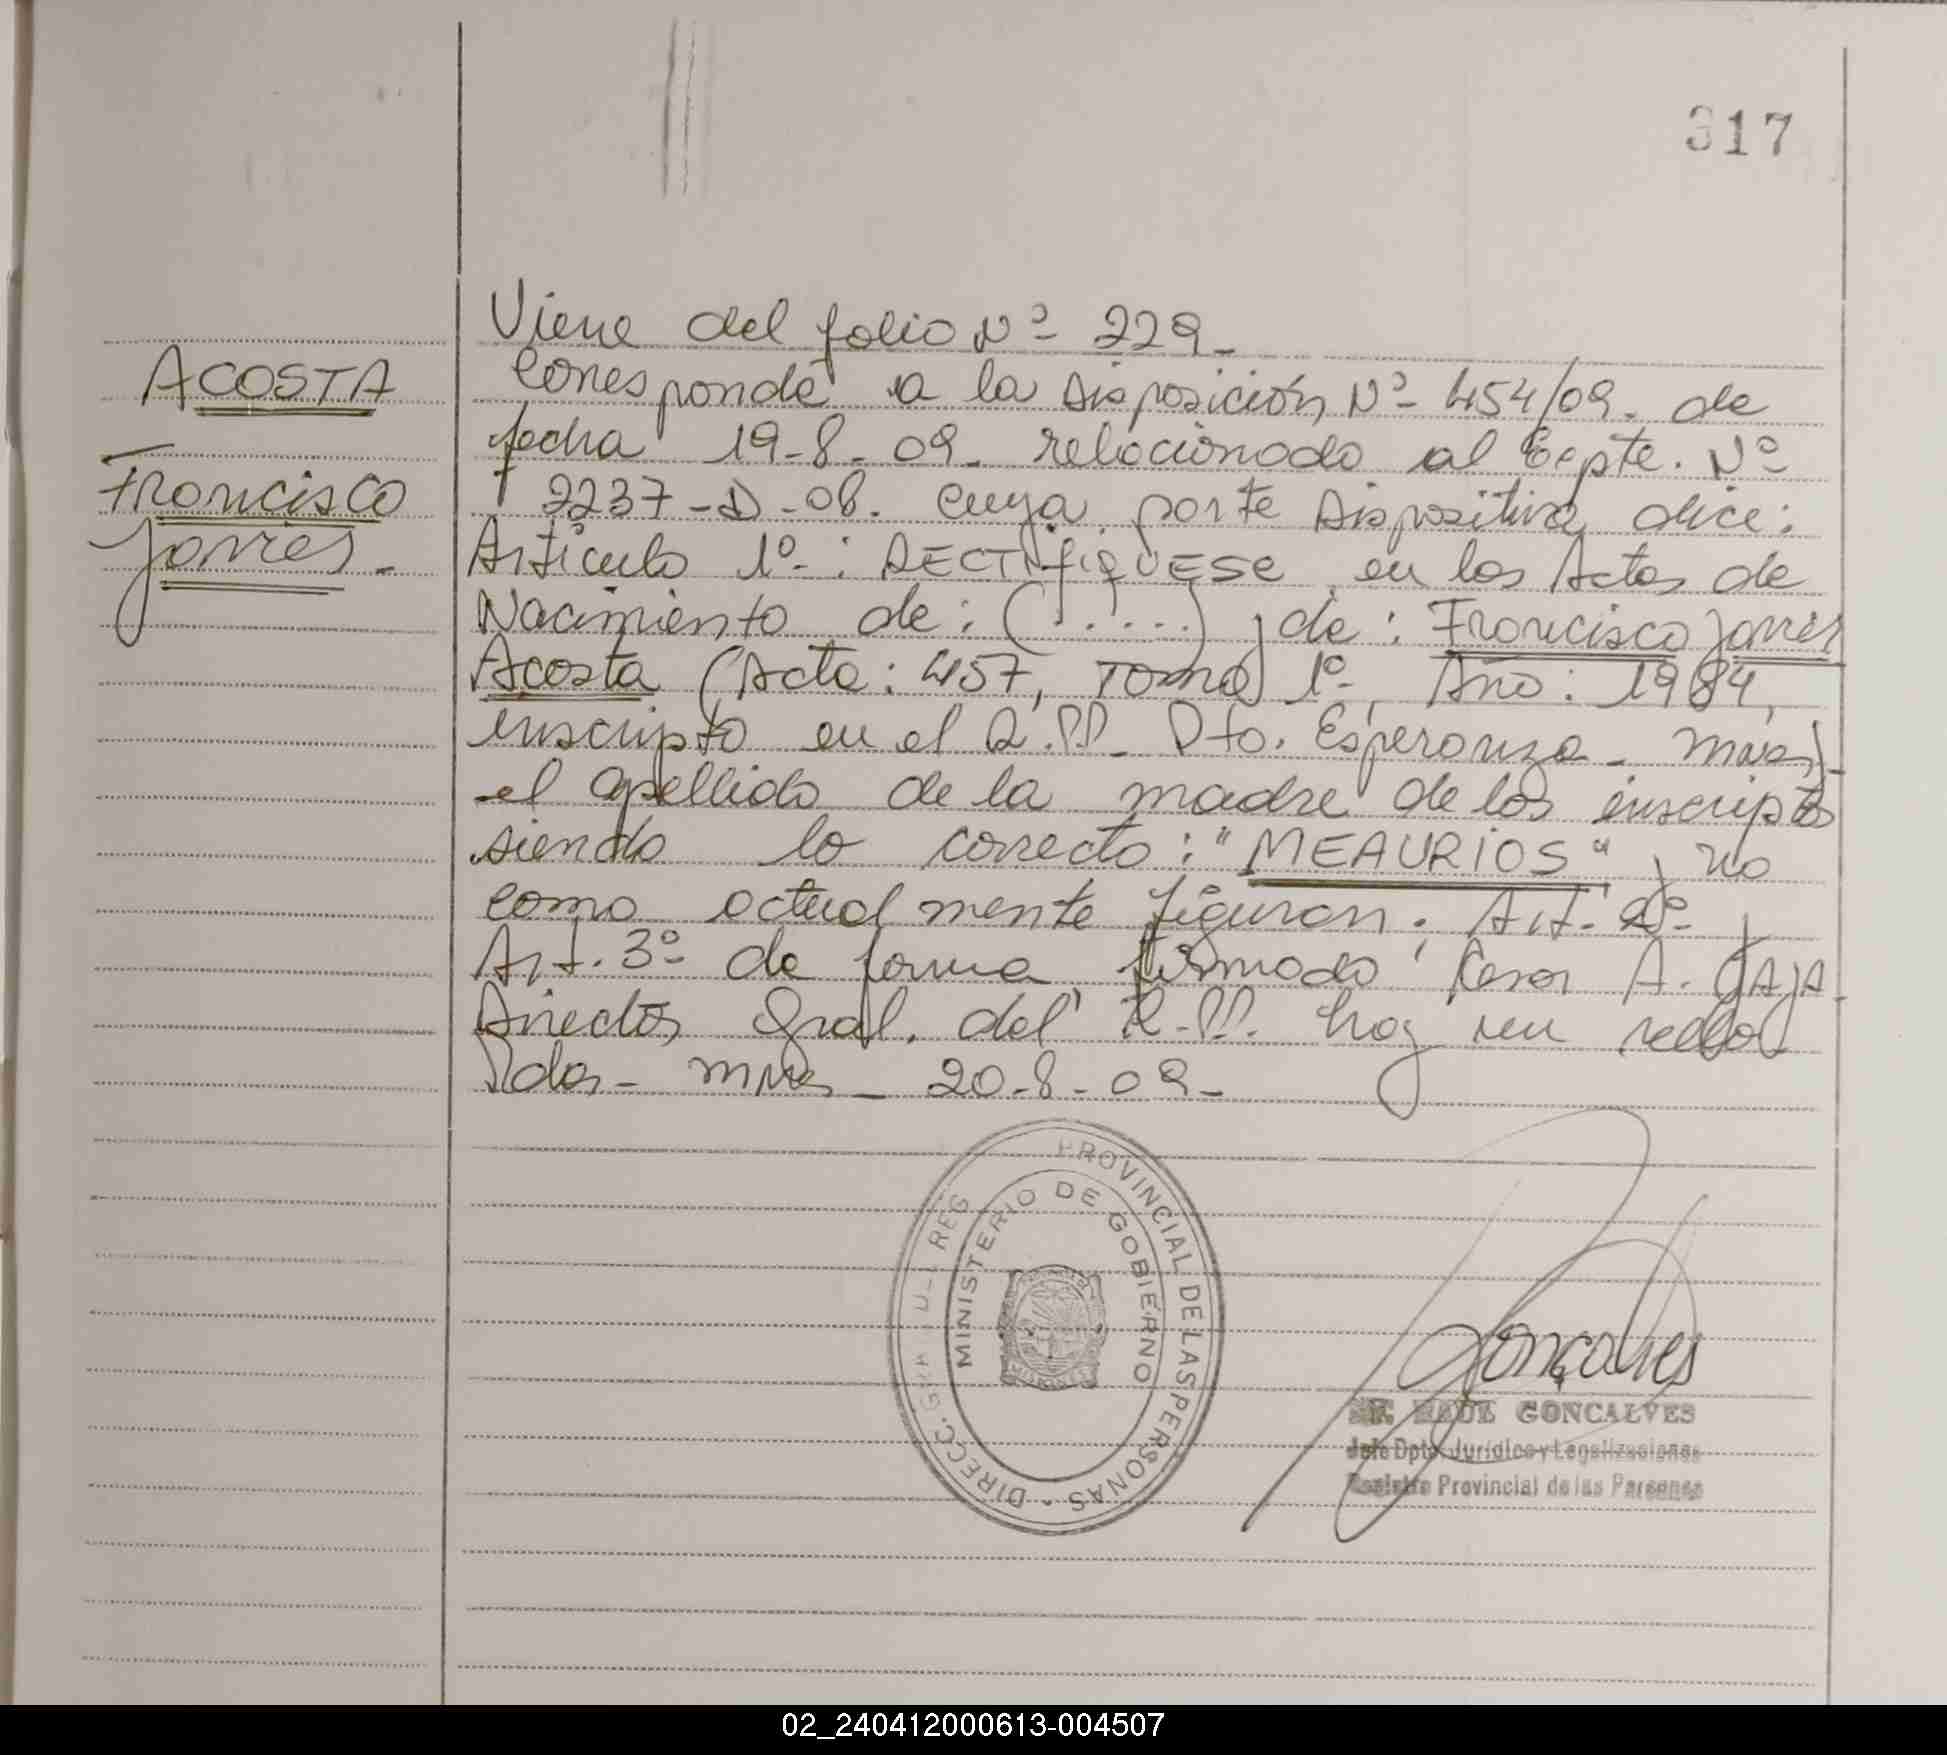 317
Viene del folio Nº 229-
ACOSTA
Corresponde a la Disposición Nº 454/09. de
fecha 19-8-09- relacionado al Expte. Nº
Francisco
2237-D-08. cuya parte Dispositiva dice:
Javier.-
Artículo 1º-: RECTIFIQUESE en las Actas de
Nacimiento de: (.....) de: Francisco Javier
Acosta (Acta: 457, Tomo 1º, Año: 1984,
inscripto en el R.PP- Dto. Esperanza- Mnes)-
el apellido de la madre de los inscriptos
siendo lo correcto: "MEAURIOS" no
como actualmente figuran; Art. 2º-
Art. 3º- de forma firmado Cesar A. GAJA-
Director Gral. del R.PP. hoy
Pdas- Mnes- 20-8-09-
DIRECC. GRAL DEL REG PROVINCIAL DE LAS PERSONAS -
MINISTERIO DE GOBIERNO
MISIONES
Goncalves
RAUL GONCALVES
Jefe Dpto. Jurídico y Legalizaciones
Registro Provincial de las Personas
02_240412000613-004507